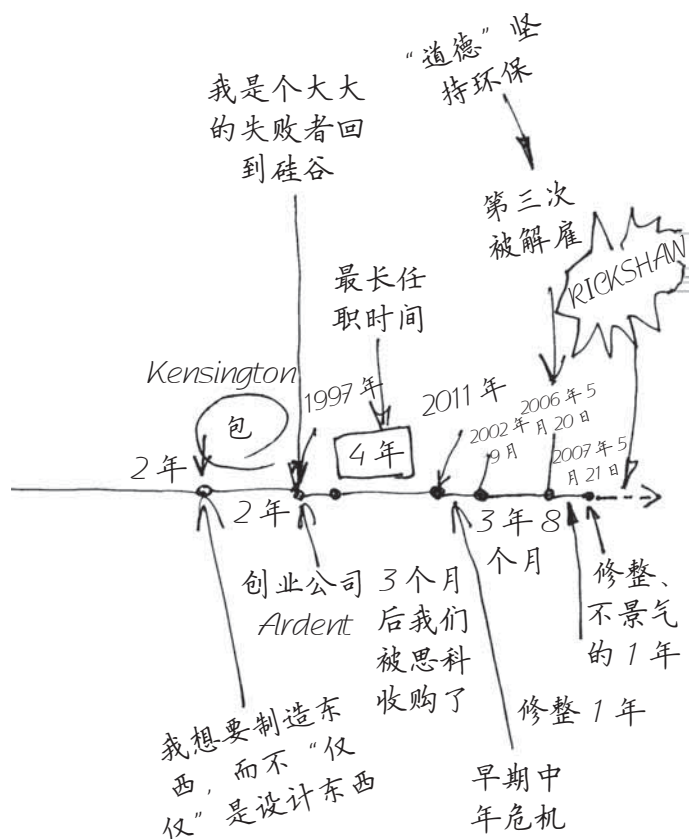 “道德”坚
持环保
我是个大大
的失败者回
到硅谷
第三次
被解雇
RICKSHAW
最长任
职时间
Kensington
包
1997年
4年
2011年
2002年
9月
2006年5
月20日
2007年5
月21日
2年
2年
3年8
个月
创业公司
Ardent
3个月
后我们
被思科
收购了
修整、
不景气
的1年
修整1年
我想要制造东
西，而不“仅
仅”是设计东西
早期中
年危机